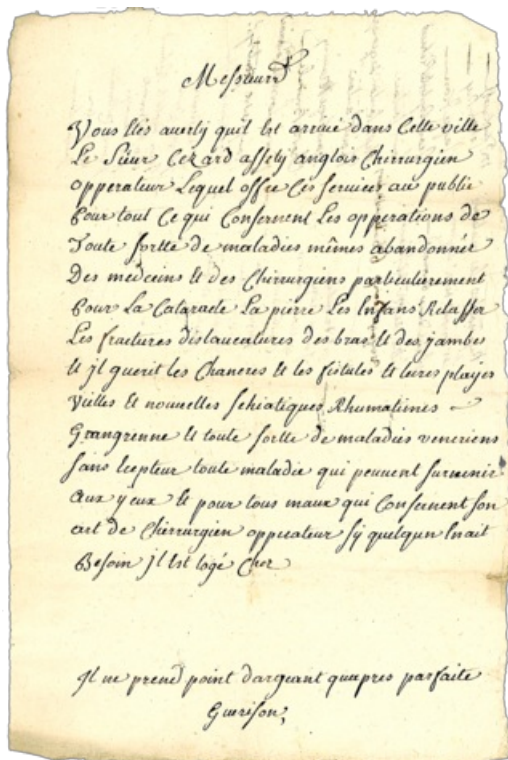 Messieurs
Vous Etés averty quil Est arrivé dans Cette ville
Le Sieur Cezard assety anglois Chirrurgien
opperateur Lequel offre Ces services au public
Pour tout Ce qui Consernent Les opperations de
Toute sortte de maladies mêmes abandonnér
Des medecins Et des Chirrurgiens particulierement
Pour La Cataracte La pierre Les Enfans Relasser
Les fractures dislaucatures des bras Et des jambes
Et jl guerit les Chancres Et les fistules Et leures playes
Vielles Et nouvelles schiatiques Rhumatimes
Grangrenne Et toute sortte de maladies veneriens
sans Excepteur toute maladie qui peuvent survenir
aux yeux Et pour tous maux qui Consernent son
art de Chirrurgien opperateur sy quelqun Enait
Besoin jl Est logé Chez
Il ne prend point dargeant quapres parfaite
Guerison,